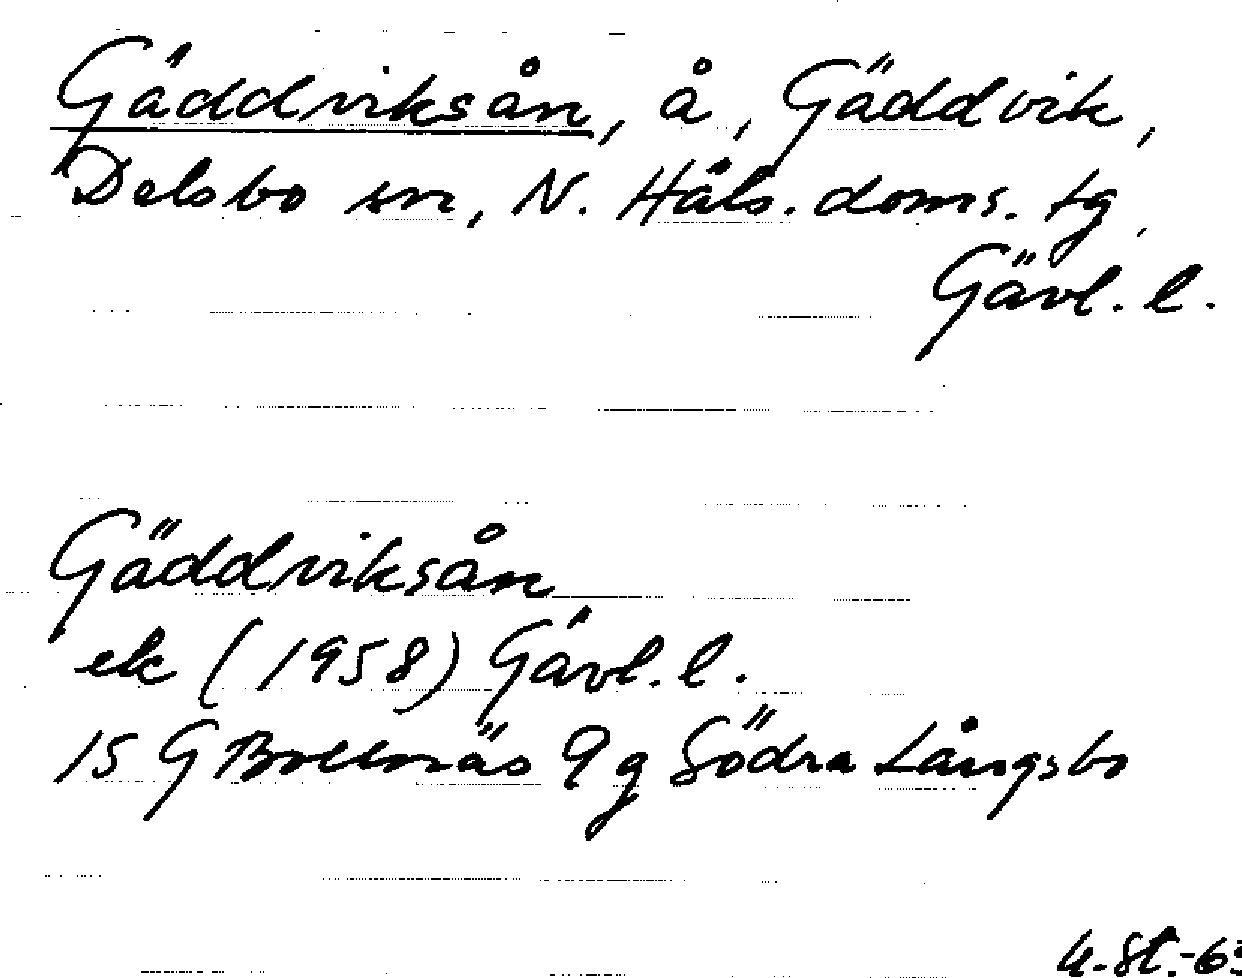 Gäddviksån, å, Gäddvik,
Delsbo sn, N. Häls. doms. tg,
Gävl. l.
Gäddviksån
ek (1958) Gävl. l.
15 G Bollnäs 9 g Södra Långsbo